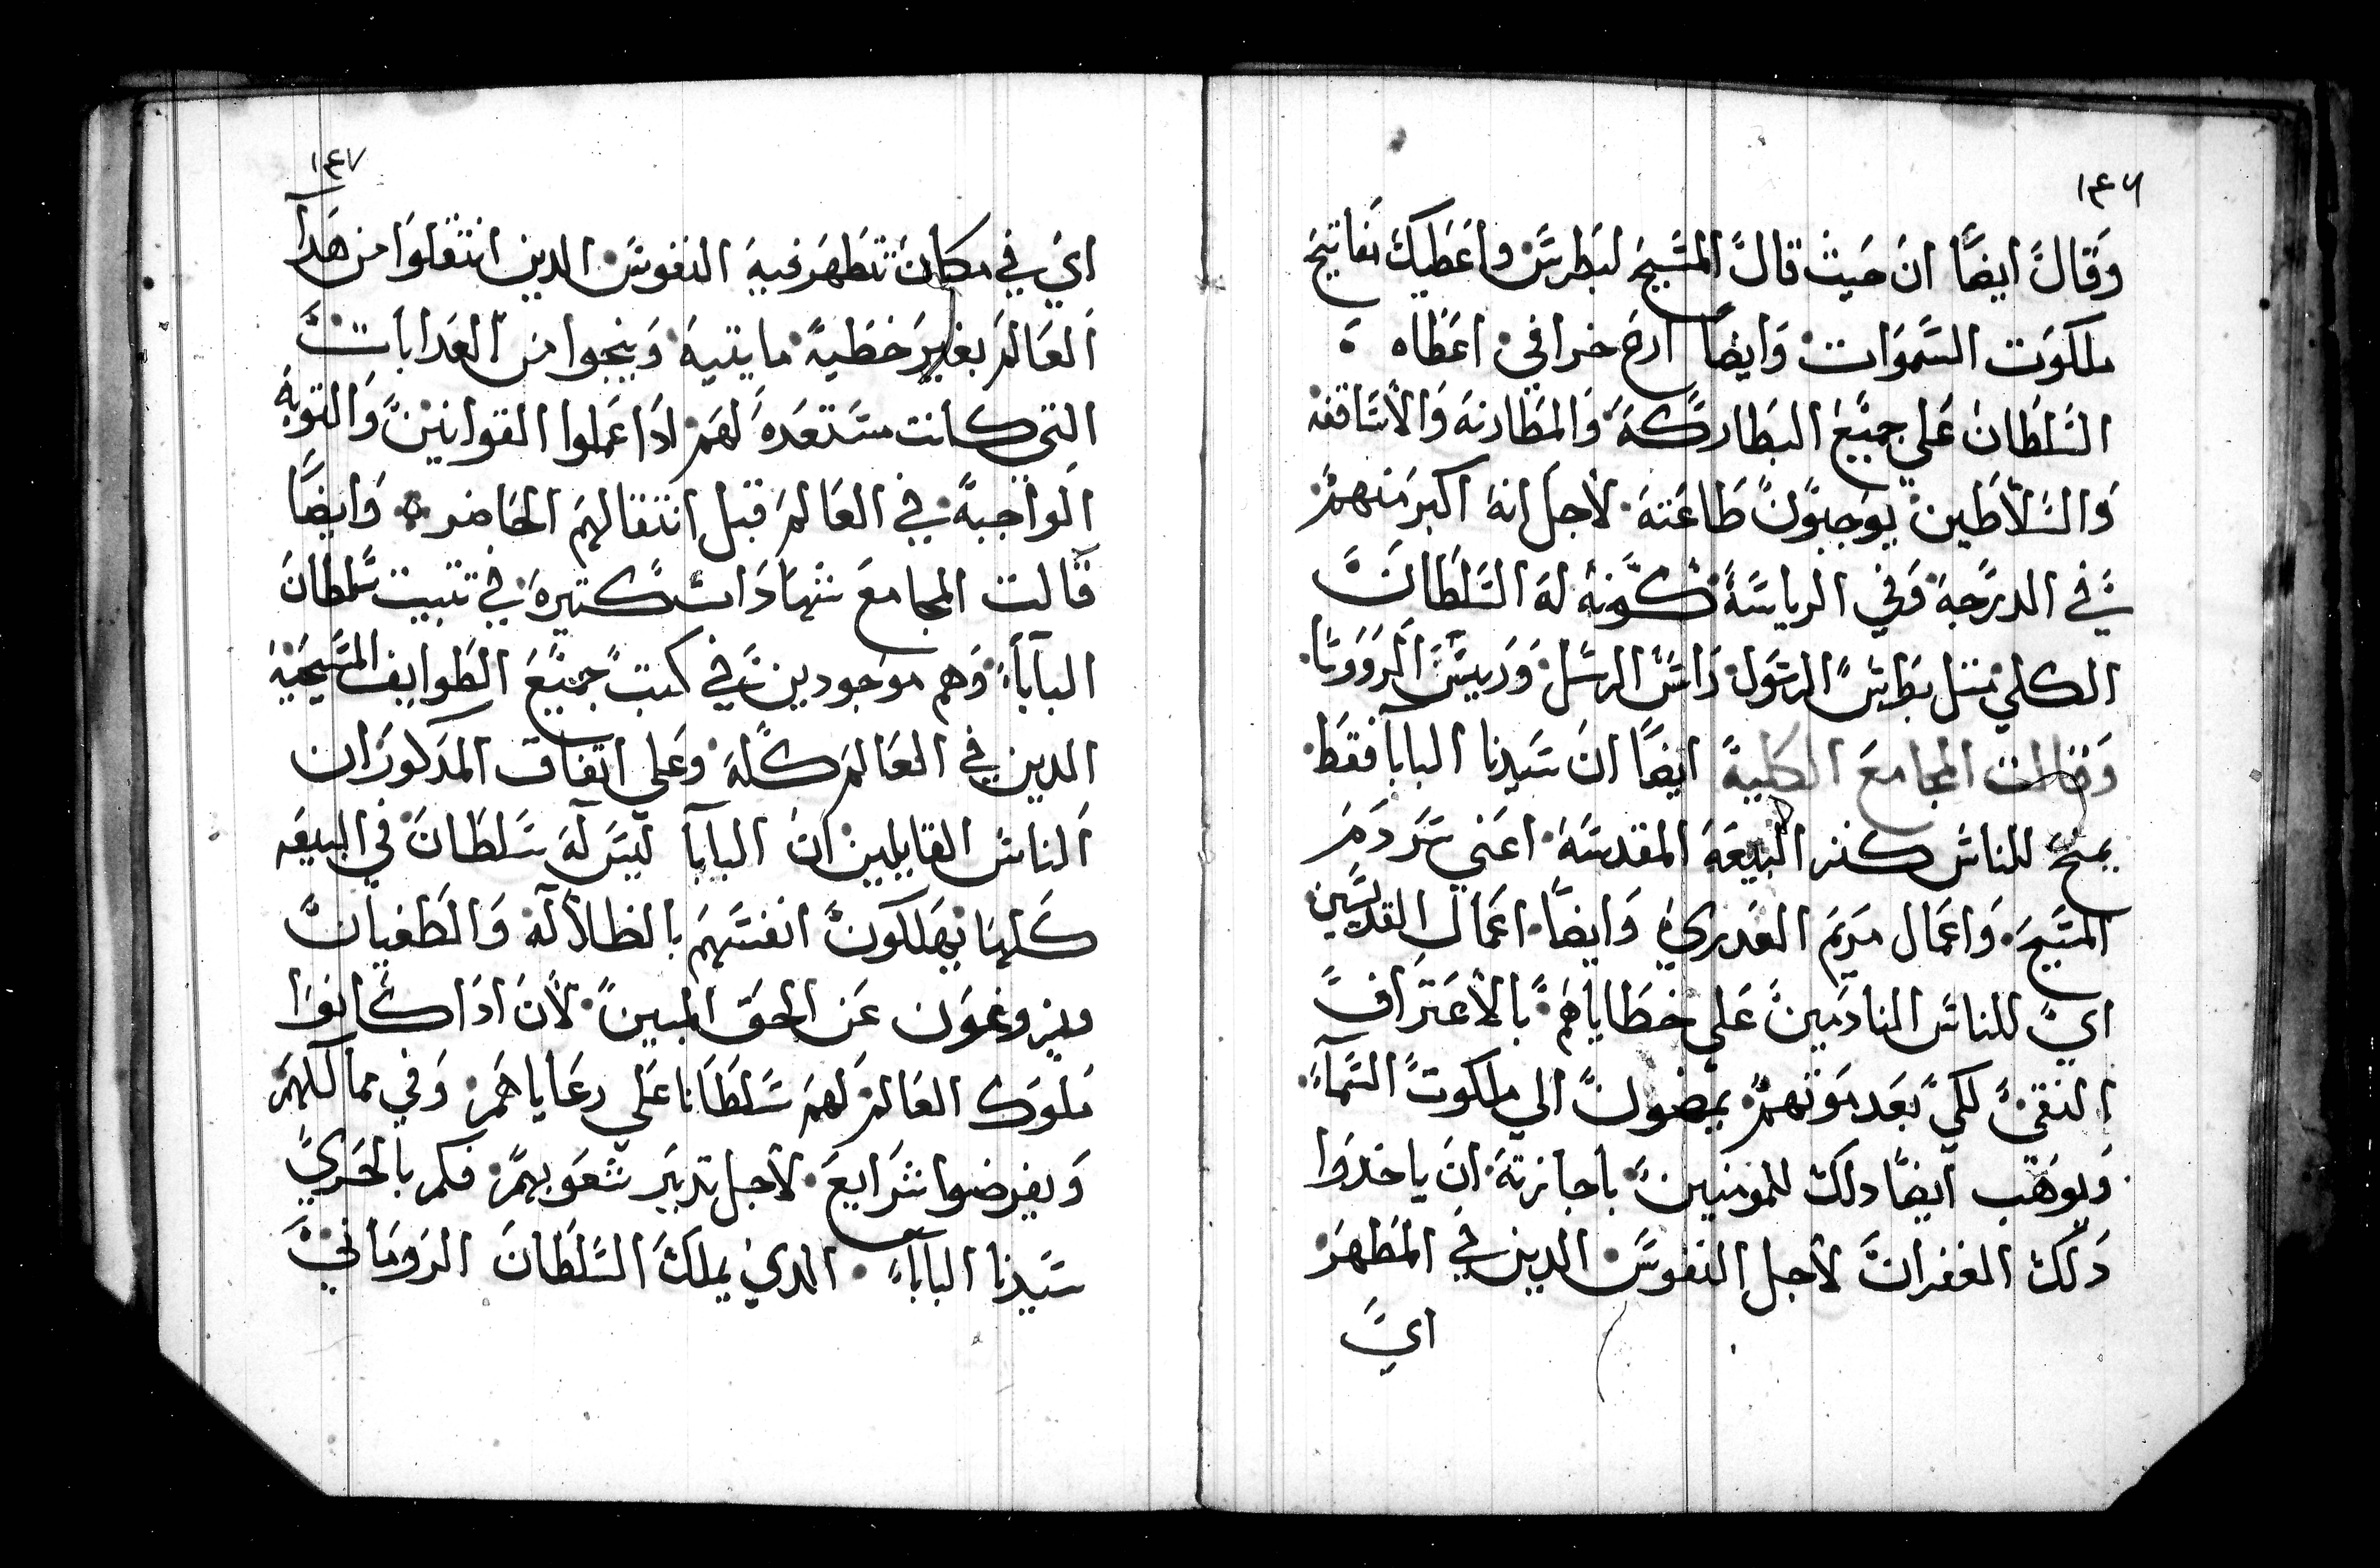 ١٤٦
وقال ايضًا ان حيث قال المسيح لبطرس واعطيك مفاتيح
ملكوت السموات وايضًا ارع خرافي اعطاه
السلطان علي جميع البطاركه والمطارنه والاساقفه
والسلاطين يوجبون طاعته لاجل انه اكبر منهم
في الدرجه وفي الرياسة كونه له السلطان
الكلي مثل بطرس الرسول راس الرسل وربيس الرووسا
وقالت المجامع الكلية ايضًا ان سيدنا البابا فقط
يمنح للناس كنز البيعه المقدسه اعني دم
المسيح واعمال مريم العدري وايضًا اعمال القديسين
اي للناس النادمين علي خطاياهم بالاعتراف
النقي لكي بعد موتهم يمضون الي ملكوت السمآء
ويوهب ايضًا دلك للمومنين باجازته ان ياخدوا
دلك الغفران لاجل النفوس الدين في المطهر
اي
١٤٧
اي في مكان تتطهر فيه النفوس الدين انتقلوا من هدا
العالم بغير خطية مايتية وينجوا من العدابات
التي كانت مستعده لهم ادا عملوا القوانين والتوبه
الواجبة في العالم قبل انتقالهم الحاضر وايضًا
قالت المجامع شهادات كتيرة في تتبيت سلطان
البابآء وهم موجودين في كتب جميع الطوايف المسيحية
الدين في العالم كله وعلي اتفاق المدكور ان
الناس القايلين ان البابا ليس له سلطان في البيعه
كلها يهلكون انفسهم بالظلاله والطغيان
ويزوغون عن الحق المبين لان ادا كانوا
ملوك العالم لهم سلطانا علي رعاياهم وفي ممالكهم
ويفرضوا شرايع لاجل تدبير شعوبهم فكم بالحري
سيدنا البابآء الدي يملك السلطان الروماني